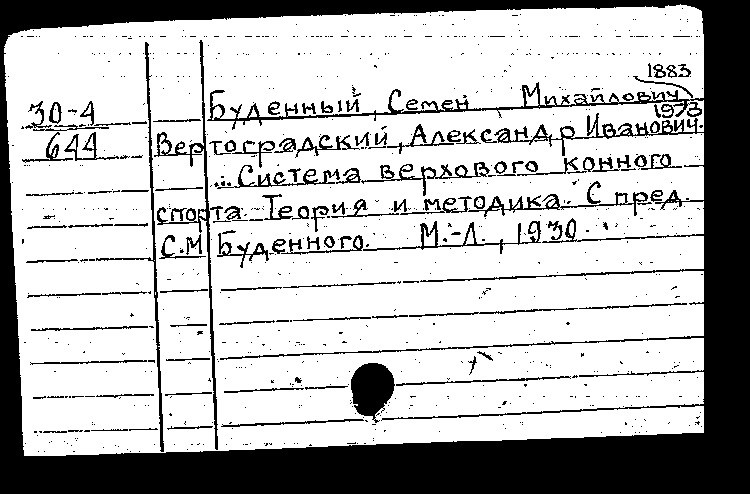 1883
30-4 Буденный, Семен Михайлович
1973
644 Вертоградский, Александр Иванович.
... Система верхового конного
спорта. Теория и методика. С пред.
С.М. Буденного. М.-Л., 1930.